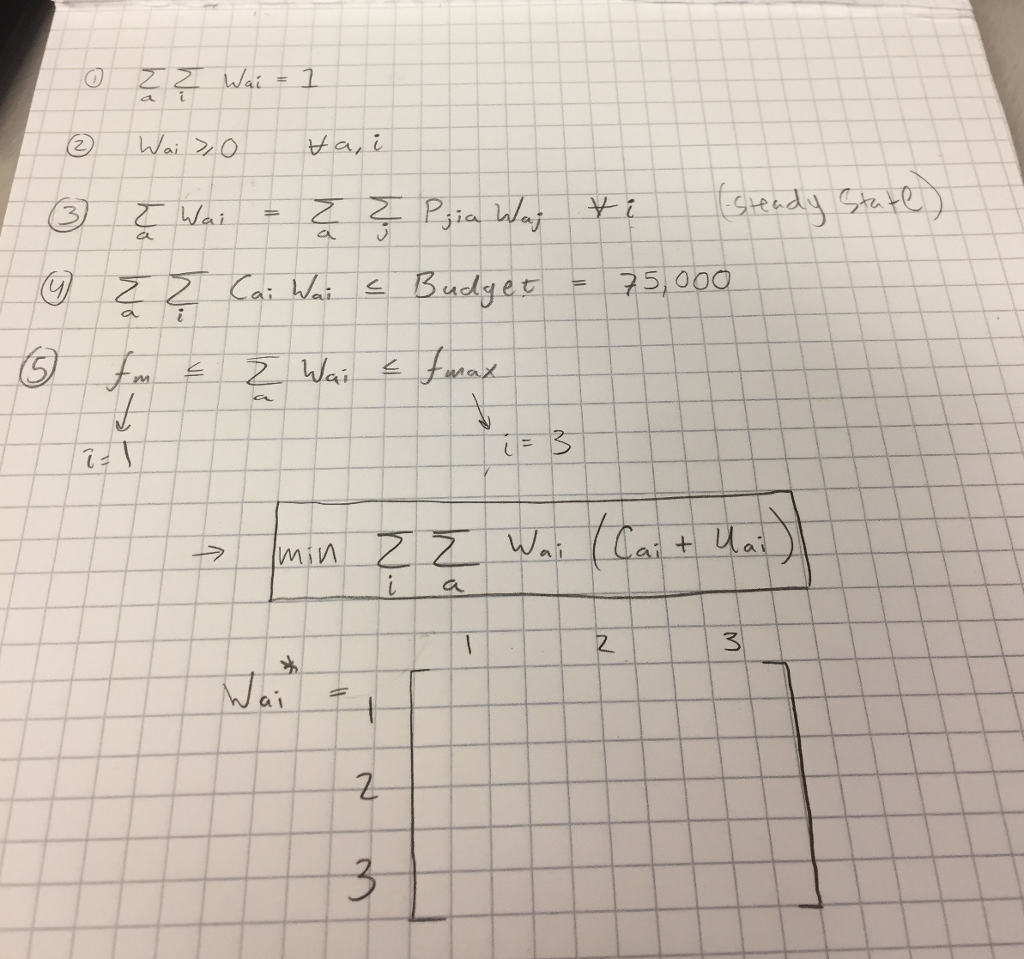 ① Σ_a Σ_i Wai = 1
② Wai ≥ 0 ∀a, i
③ Σ_a Wai = Σ_a Σ_j Pjia Waj ∀i (steady State)
④ Σ_a Σ_i Cai Wai ≤ Budget = 75,000
⑤ fm ≤ Σ_a Wai ≤ fmax
↓ ↘
i=1 i = 3
→ min Σ_i Σ_a Wai (Cai + Uai)
1 2 3
Wai* = 1
2
3